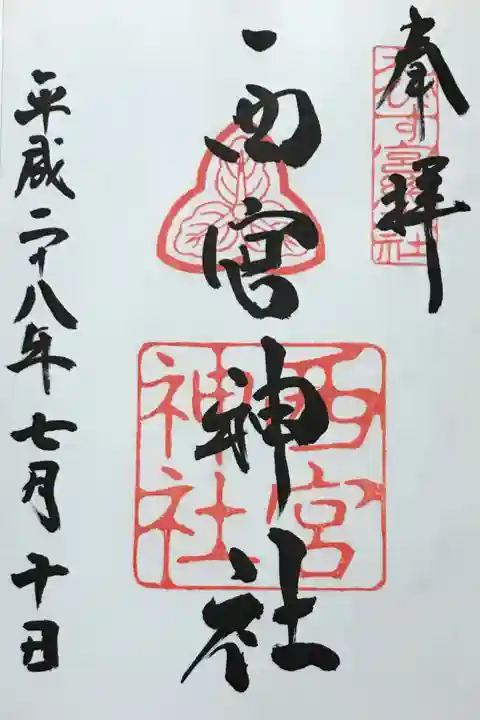 奉拝
西宮神社
西宮
神社
平成二十八年七月十日